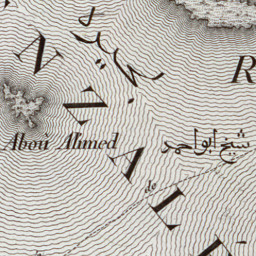 N Z A L E
R
Aboù Ahmed
شيخ ابو احمد
de